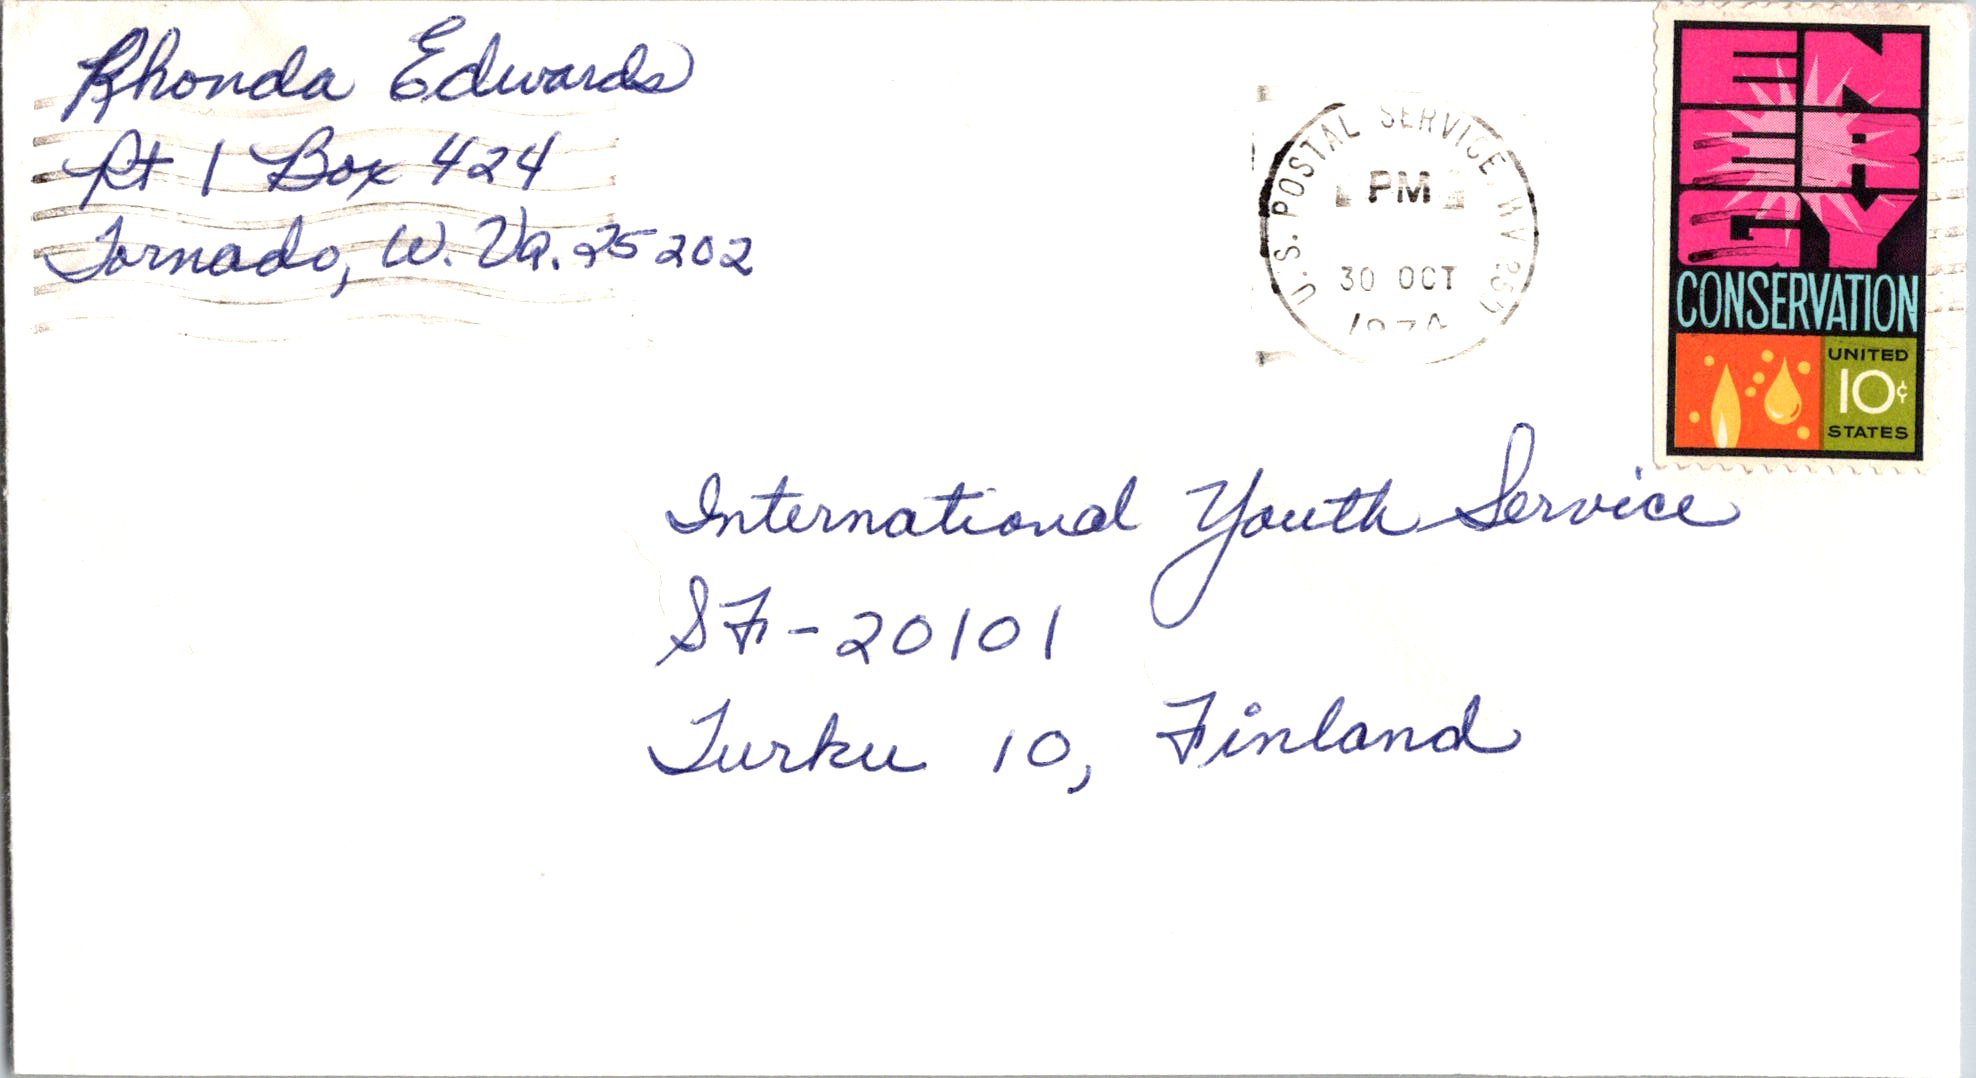 Rhonda Edwards
Rt 1 Box 424
Tornado, W. Va. 25202
U.S. POSTAL SERVICE WV
PM
30 OCT
ENERGY
CONSERVATION
UNITED
10¢
STATES
International Youth Service
SF-20101
Turku 10, Finland